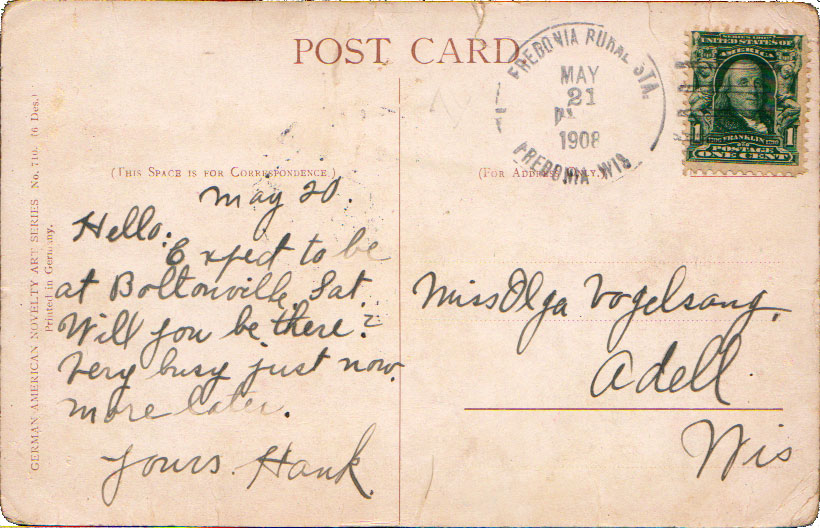 POST CARD
FREDONIA RURAL STA.
MAY
21
1908
FREDONIA WIS
SERIES 1902
UNITED STATES OF
AMERICA
1 FRANKLIN 1
POSTAGE
ONE CENT
(This Space is for Correspondence.)
(For Address Only.)
May 20.
Hello.
Expect to be
at Boltonville, Sat.
Will you be there?
Very busy just now.
more later.
Yours. Hank.
Miss Olga Vogelsang.
Adell
Wis
GERMAN AMERICAN NOVELTY ART SERIES No. 710. (6 Des.)
Printed in Germany.